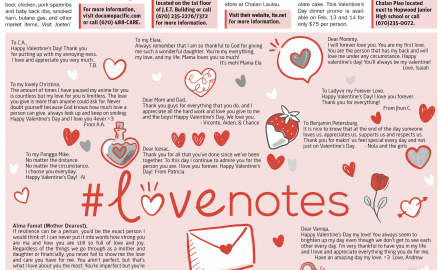 loer, chicken, pork sapenta
and baby back ribs, smoked
ham, butane gas, and other
market items. Visit Joeten'
For more information,
visit docomopacific.com
or call (670) 488-CARE.
located on the 1st floor
of J.E.T. Building or call
(670) 235-2276/7372
for more information.
store at Chalan Laulau.
Visit their website, ite.net
for more information.
plate cake. This Valentine's
Day dinner promo is avail-
able on Feb. 13 and 14 for
only $75 per person.
Chalan Piao located
next to Hopwood Junior
High school or call
(670)235-0072.
To C.A.,
Happy Valentine's Day! Thank you
for putting up with my annoying-ness.
I love and appreciate you always.
T.B.
To my Elaia,
Always remember that I am so thankful to God for giving
me such a wonderful daughter. You're my everything
my love, and my life. Mama loves you so much!
It's me!! Mama Ela
Dear Mommy,
I will forever love you. You are my first love.
You are the person that has my back and will
love me under any circumstance. Happy
valentine's day! You'll always be my valentine!
Love, Isaiah
To my lovely Christina,
The amount of times I have paused my anime for you
is countless but my love for you is limitless. The love
you give is more than anyone could ask for. Never
doubt yourself because God knows how much love a
person can give, always look up and keep on smiling.
Happy Valentine's day and I love you 4ever! <3
From A.A.
Dear Mom and Dad,
Thank you guys for everything that you do, and I
appreciate all the hard work and love you give to me
and the boys! Happy Valentine's Day, We love you.
- Vicente, Aiden, & Chance
To Ladyvir my Forever Love,
Happy Valentine's Day! I love you forever.
Thank you for everything!
From Jhun C.
To Benjamin Petersburg,
It is nice to know that at the end of the day someone
loves us, appreciates us, supports us and respects us.
Thank you for makin' us feel special every day and not
just on Valentine's Day. - Nola and the girls
To my Pangga Mike,
No matter the distance.
No matter the circumstance.
I choose you everyday.
Happy Valentine's Day! -N
Dear Kosac,
Thank you for all that you've done since we've been
together. To this day I continue to admire you for the
person you are. I love you forever. Happy Valentine's
Day! From Patricia
#lovenotes
Alma Famat (Mother Dearest),
If resilience can be a person, you'd be the exact person I
would think of. I can never put it into words how strong you
are me and how you are still so full of love and joy.
Regardless of the things we go through as a mother and
daughter or financially, you never fail to show me the love
and care you have for me. You aren't perfect, but that's
what I love about you the most. You're imperfect but you're
Dear Vanaja,
Happy Valentine's Day my love! You always seem to
brighten up my day even though we don't get to see each
other every day. I'm very thankful to have you in my life
and I love and appreciate everything that you do for me.
Have an amazing day my love. <3 Love, Andrew